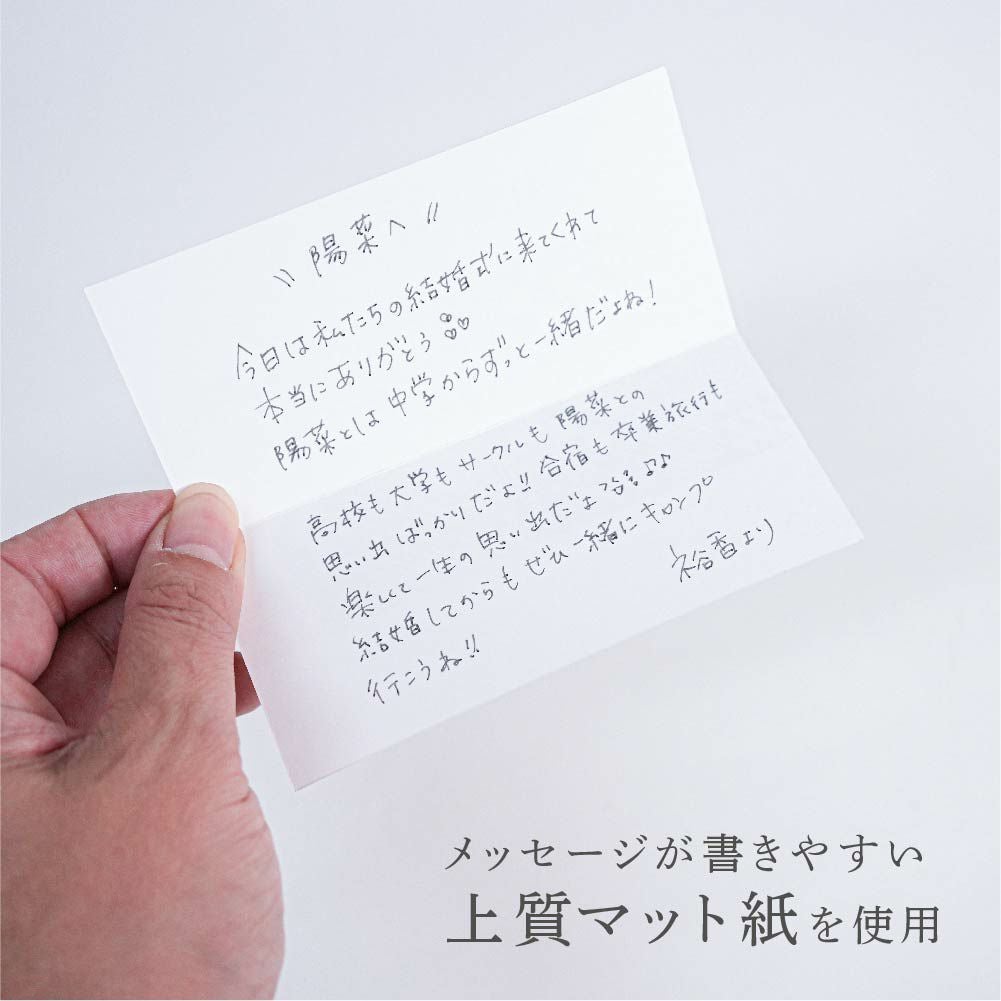 〃陽菜へ〃
今日は私たちの結婚式に来てくれて
本当にありがとう♡♡♡
陽菜とは中学からずっと一緒だよね!
高校も大学もサークルも陽菜との
思い出ばっかりだよ!!合宿も卒業旅行も
楽しくて一生の思い出だよ♪♪
結婚してからもぜひ一緒にキャンプ
行こうね!!
裕香より
メッセージが書きやすい
上質マット紙を使用